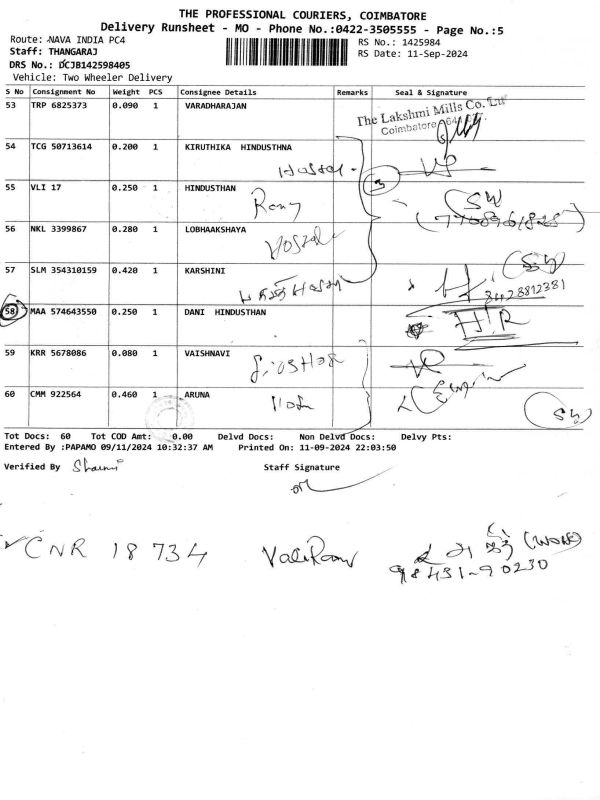 THE PROFESSIONAL COURIERS, COIMBATORE
Delivery Runsheet - MO - Phone No.:0422-3505555 - Page No.:5
Route: NAVA INDIA PC4
RS No.: 1425984
Staff: THANGARAJ
RS Date: 11-Sep-2024
DRS No.: DCJB142598405
Vehicle: Two Wheeler Delivery
S No Consignment No Weight PCS Consignee Details Remarks Seal & Signature
53 TRP 6825373 0.090 1 VARADHARAJAN
The Lakshmi Mills Co. Ltd
Coimbatore
54 TCG 50713614 0.200 1 KIRUTHIKA HINDUSTHNA
Hostel
55 VLI 17 0.250 1 HINDUSTHAN
56 NKL 3399867 0.280 1 LOBHAAKSHAYA
57 SLM 354310159 0.420 1 KARSHINI
8428812381
58 MAA 574643550 0.250 1 DANI HINDUSTHAN
59 KRR 5678086 0.080 1 VAISHNAVI
60 CMM 922564 0.460 1 ARUNA
Tot Docs: 60 Tot COD Amt: 0.00 Delvd Docs: Non Delvd Docs: Delvy Pts:
Entered By :PAPAMO 09/11/2024 10:32:37 AM Printed On: 11-09-2024 22:03:50
Verified By
Staff Signature
CNR 18734
98431-90230